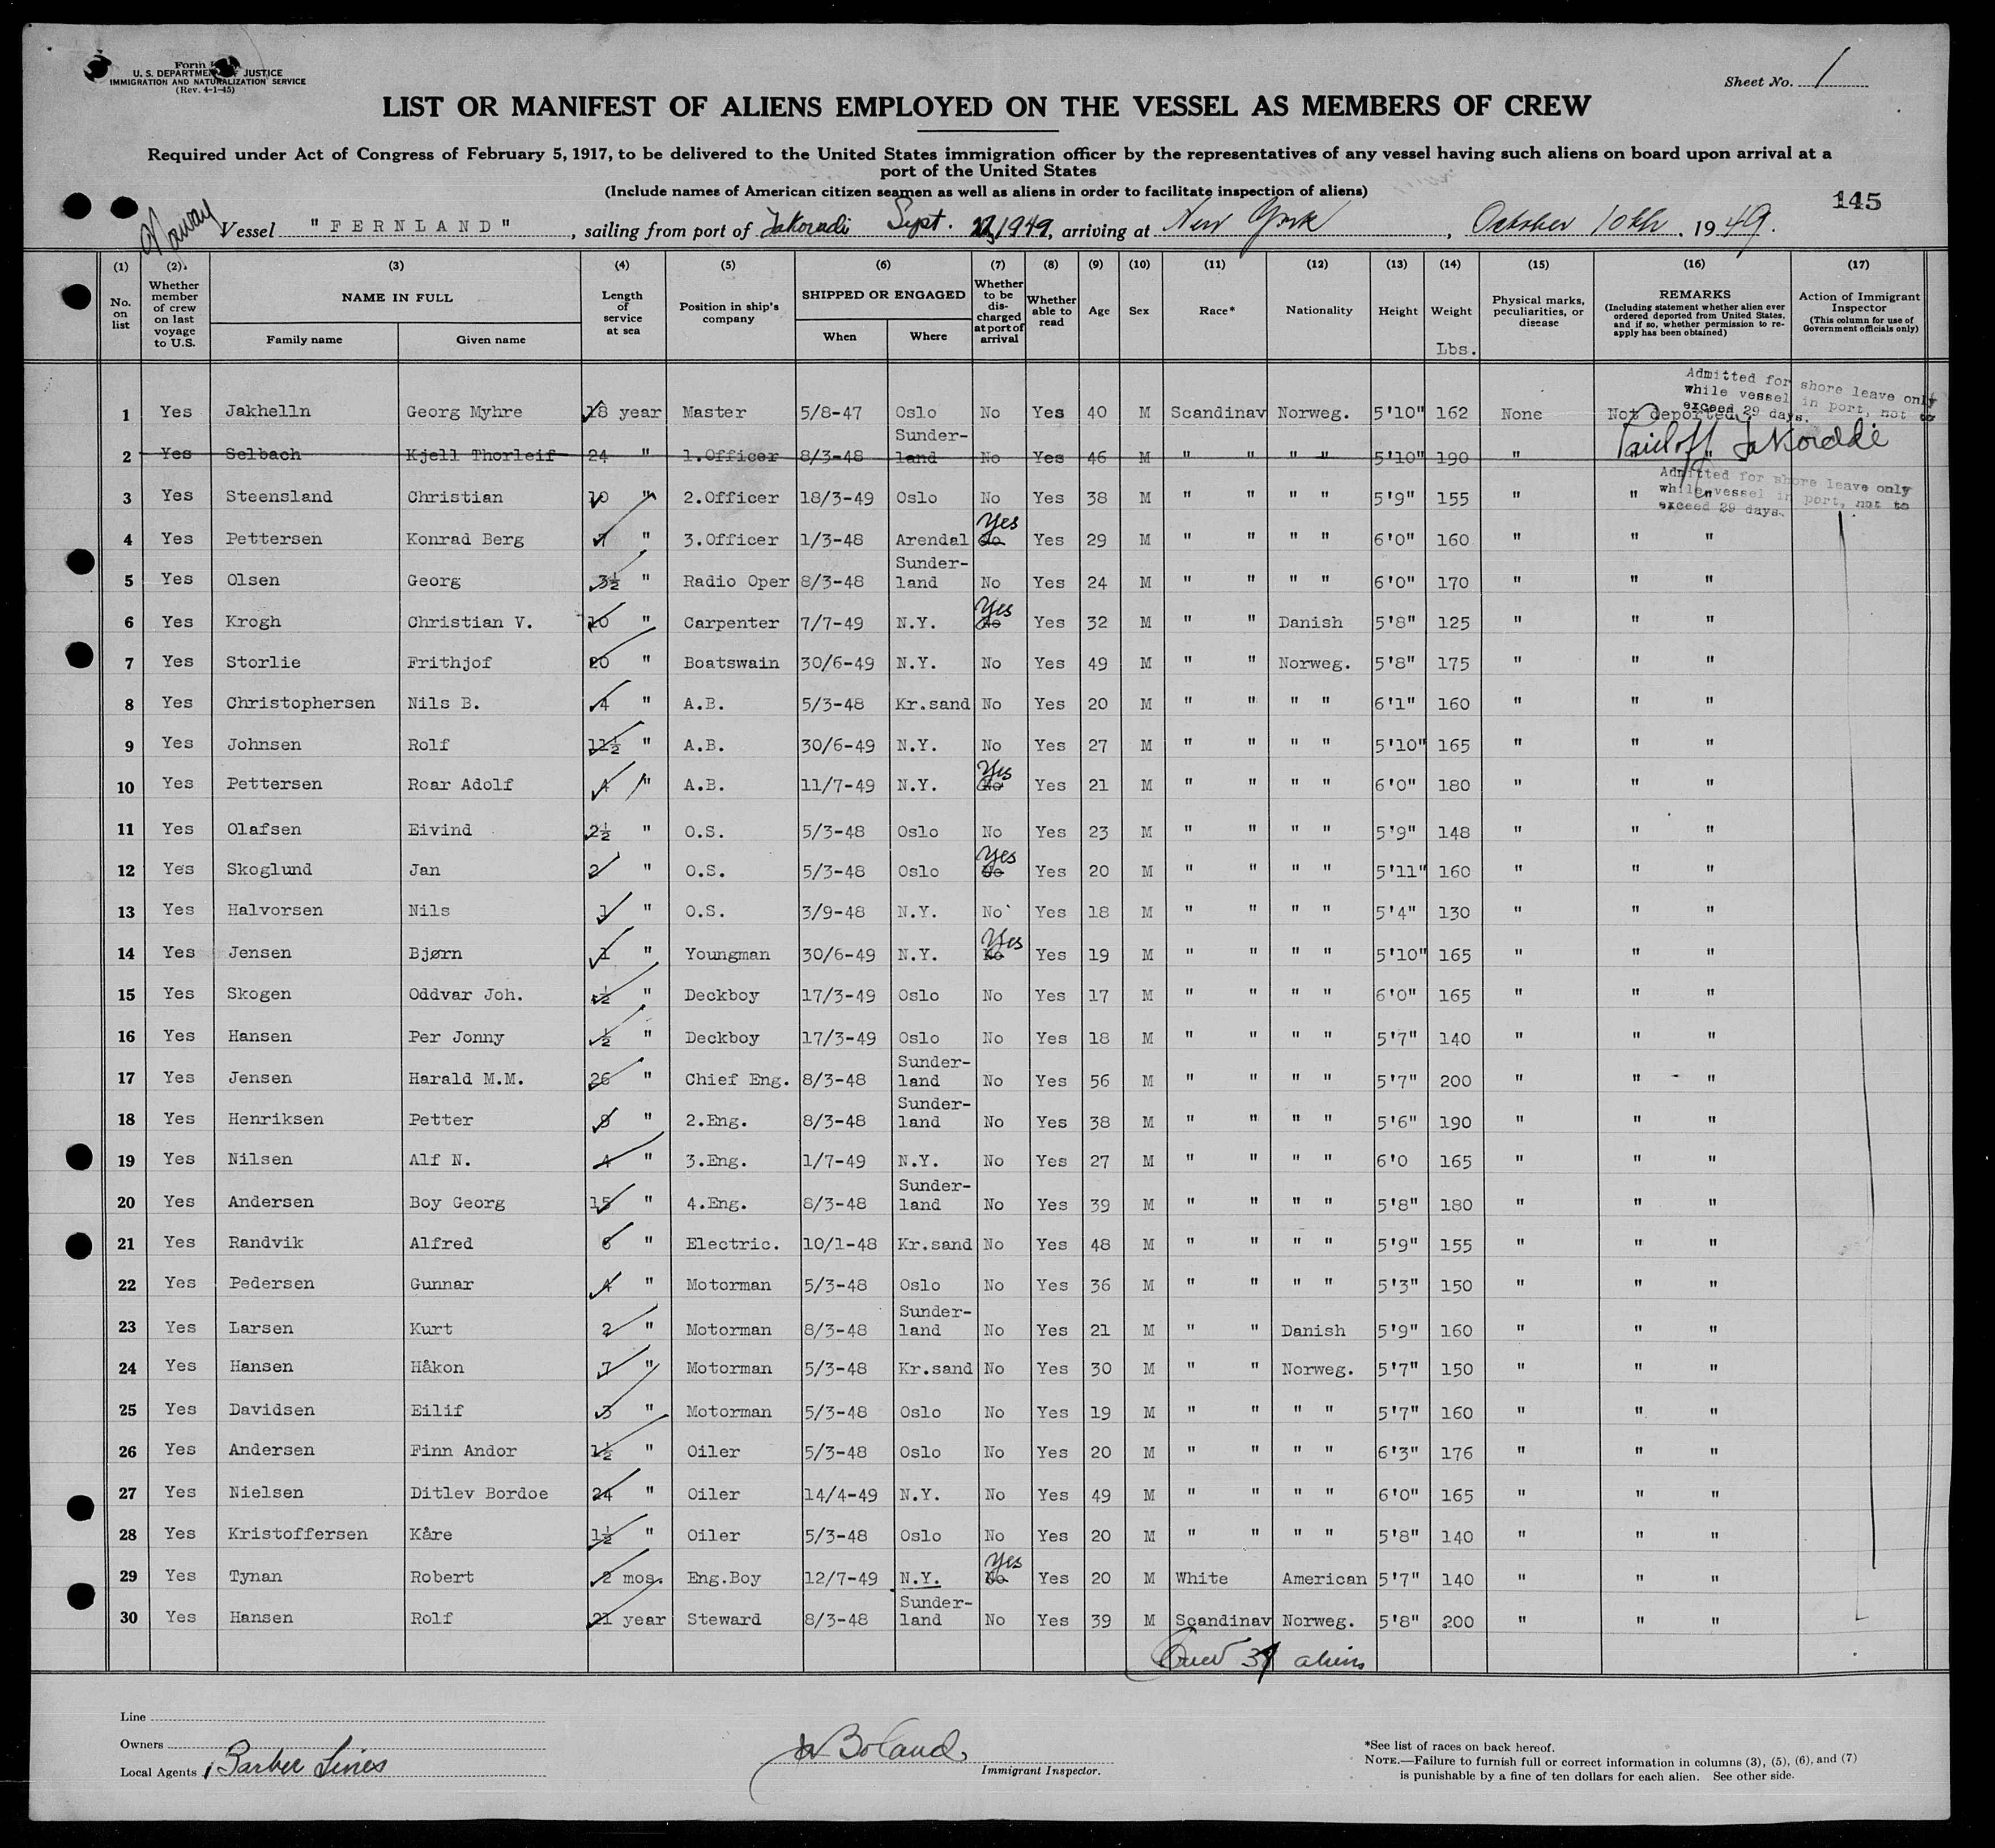 Form
U. S. DEPARTMENT OF JUSTICE
IMMIGRATION AND NATURALIZATION SERVICE
(Rev. 4-1-45)
Sheet No. 1
LIST OR MANIFEST OF ALIENS EMPLOYED ON THE VESSEL AS MEMBERS OF CREW
Required under Act of Congress of February 5, 1917, to be delivered to the United States immigration officer by the representatives of any vessel having such aliens on board upon arrival at a
port of the United States
(Include names of American citizen seamen as well as aliens in order to facilitate inspection of aliens)
145
Norway Vessel "FERNLAND", sailing from port of Takoradi Sept. 1949, arriving at New York, October 10th, 1949.
(1) (2) (3) (4) (5) (6) (7) (8) (9) (10) (11) (12) (13) (14) (15) (16) (17)
No. on list Whether member of crew on last voyage to U.S. NAME IN FULL Family name Given name Length of service at sea Position in ship's company SHIPPED OR ENGAGED When Where Whether to be discharged at port of arrival Whether able to read Age Sex Race* Nationality Height Weight Lbs. Physical marks, peculiarities, or disease REMARKS (Including statement whether alien ever ordered deported from United States, and if so, whether permission to re-apply has been obtained) Action of Immigrant Inspector (This column for use of Government officials only)
Admitted for shore leave only while vessel in port, not to exceed 29 days.
1 Yes Jakhelln Georg Myhre 18 year Master 5/8-47 Oslo No Yes 40 M Scandinav Norweg. 5'10" 162 None Not deported
2 Yes Selbach Kjell Thorleif 24 " 1.Officer 8/3-48 Sunder-land No Yes 46 M " " " " 5'10" 190 " " Paid off Takoradi
Admitted for shore leave only while vessel in port, not to exceed 29 days.
3 Yes Steensland Christian 10 " 2.Officer 18/3-49 Oslo No Yes 38 M " " " " 5'9" 155 " " "
4 Yes Pettersen Konrad Berg 7 " 3.Officer 1/3-48 Arendal No Yes Yes 29 M " " " " 6'0" 160 " " "
5 Yes Olsen Georg 3½ " Radio Oper 8/3-48 Sunder-land No Yes 24 M " " " " 6'0" 170 " " "
6 Yes Krogh Christian V. 10 " Carpenter 7/7-49 N.Y. No Yes Yes 32 M " " Danish 5'8" 125 " " "
7 Yes Storlie Frithjof 20 " Boatswain 30/6-49 N.Y. No Yes 49 M " " Norweg. 5'8" 175 " " "
8 Yes Christophersen Nils B. 4 " A.B. 5/3-48 Kr.sand No Yes 20 M " " " " 6'1" 160 " " "
9 Yes Johnsen Rolf 11½ " A.B. 30/6-49 N.Y. No Yes 27 M " " " " 5'10" 165 " " "
10 Yes Pettersen Roar Adolf 4 " A.B. 11/7-49 N.Y. No Yes Yes 21 M " " " " 6'0" 180 " " "
11 Yes Olafsen Eivind 2½ " O.S. 5/3-48 Oslo No Yes 23 M " " " " 5'9" 148 " " "
12 Yes Skoglund Jan 2 " O.S. 5/3-48 Oslo No Yes Yes 20 M " " " " 5'11" 160 " " "
13 Yes Halvorsen Nils 1 " O.S. 3/9-48 N.Y. No Yes 18 M " " " " 5'4" 130 " " "
14 Yes Jensen Bjørn 1 " Youngman 30/6-49 N.Y. No Yes Yes 19 M " " " " 5'10" 165 " " "
15 Yes Skogen Oddvar Joh. ½ " Deckboy 17/3-49 Oslo No Yes 17 M " " " " 6'0" 165 " " "
16 Yes Hansen Per Jonny ½ " Deckboy 17/3-49 Oslo No Yes 18 M " " " " 5'7" 140 " " "
17 Yes Jensen Harald M.M. 26 " Chief Eng. 8/3-48 Sunder-land No Yes 56 M " " " " 5'7" 200 " " "
18 Yes Henriksen Petter 8 " 2.Eng. 8/3-48 Sunder-land No Yes 38 M " " " " 5'6" 190 " " "
19 Yes Nilsen Alf N. 4 " 3.Eng. 1/7-49 N.Y. No Yes 27 M " " " " 6'0 165 " " "
20 Yes Andersen Boy Georg 15 " 4.Eng. 8/3-48 Sunder-land No Yes 39 M " " " " 5'8" 180 " " "
21 Yes Randvik Alfred 6 " Electric. 10/1-48 Kr.sand No Yes 48 M " " " " 5'9" 155 " " "
22 Yes Pedersen Gunnar 4 " Motorman 5/3-48 Oslo No Yes 36 M " " " " 5'3" 150 " " "
23 Yes Larsen Kurt 2 " Motorman 8/3-48 Sunder-land No Yes 21 M " " Danish 5'9" 160 " " "
24 Yes Hansen Håkon 7 " Motorman 5/3-48 Kr.sand No Yes 30 M " " Norweg. 5'7" 150 " " "
25 Yes Davidsen Eilif 3 " Motorman 5/3-48 Oslo No Yes 19 M " " " " 5'7" 160 " " "
26 Yes Andersen Finn Andor 1½ " Oiler 5/3-48 Oslo No Yes 20 M " " " " 6'3" 176 " " "
27 Yes Nielsen Ditlev Bordoe 24 " Oiler 14/4-49 N.Y. No Yes 49 M " " " " 6'0" 165 " " "
28 Yes Kristoffersen Kåre 1½ " Oiler 5/3-48 Oslo No Yes 20 M " " " " 5'8" 140 " " "
29 Yes Tynan Robert 2 mos. Eng.Boy 12/7-49 N.Y. No Yes Yes 20 M White American 5'7" 140 " " "
30 Yes Hansen Rolf 21 year Steward 8/3-48 Sunder-land No Yes 39 M Scandinav Norweg. 5'8" 200 " " "
aliens
Line
Owners
Local Agents Barber Lines
Boland
Immigrant Inspector.
*See list of races on back hereof.
NOTE.—Failure to furnish full or correct information in columns (3), (5), (6), and (7)
is punishable by a fine of ten dollars for each alien. See other side.